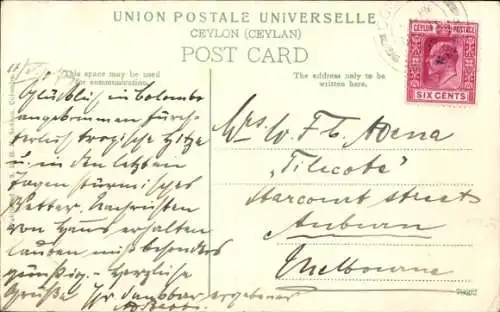 UNION POSTALE UNIVERSELLE
CEYLON (CEYLAN)
POST CARD
This space may be used
for communication.
The address only to be
written here.
CEYLON POSTAGE
SIX CENTS
Glücklich in Colombo
angekommen fürch-
terlich tropische Hitze
u. in den letzten
Tagen stürmisches
Wetter. Nachrichten
von Haus erhalten
lauten nicht besonders
günstig. - Herzliche
Grüße Ihr dankbar ergebener
Mrs W. F. C. Adena
"Tilicote"
Harcourt street
Auburn
Melbourne